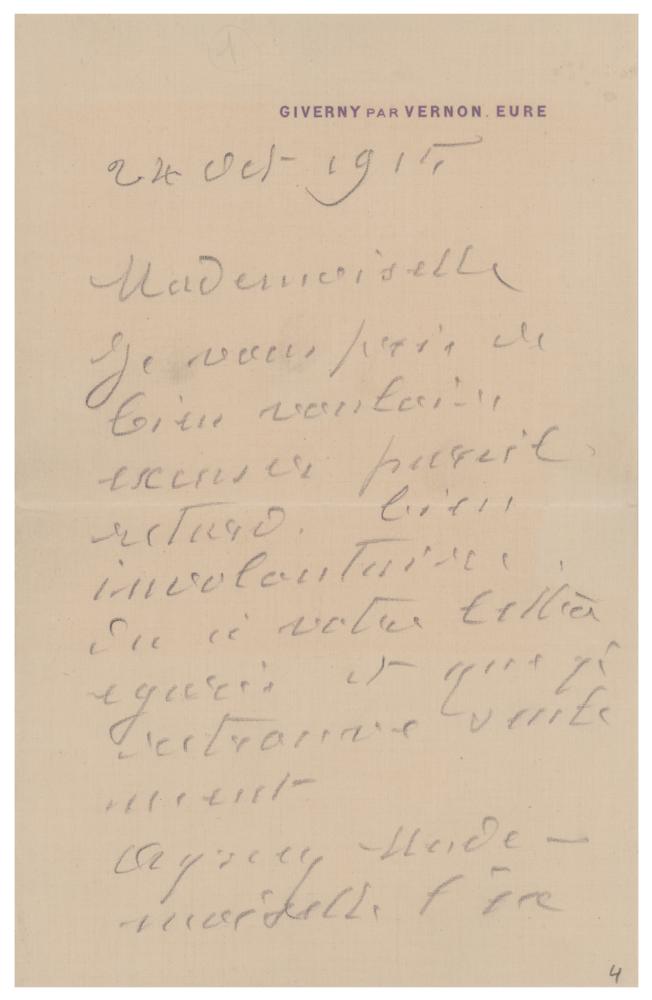 1
GIVERNY PAR VERNON. EURE
24 Oct 1915
Mademoiselle
Je vous prie de
bien vouloir
excuser pareil
retard. bien
involontaire.
du à votre lettre
egarée et que je
retrouve seule
ment
Agreez Made-
moiselle l'ex
4